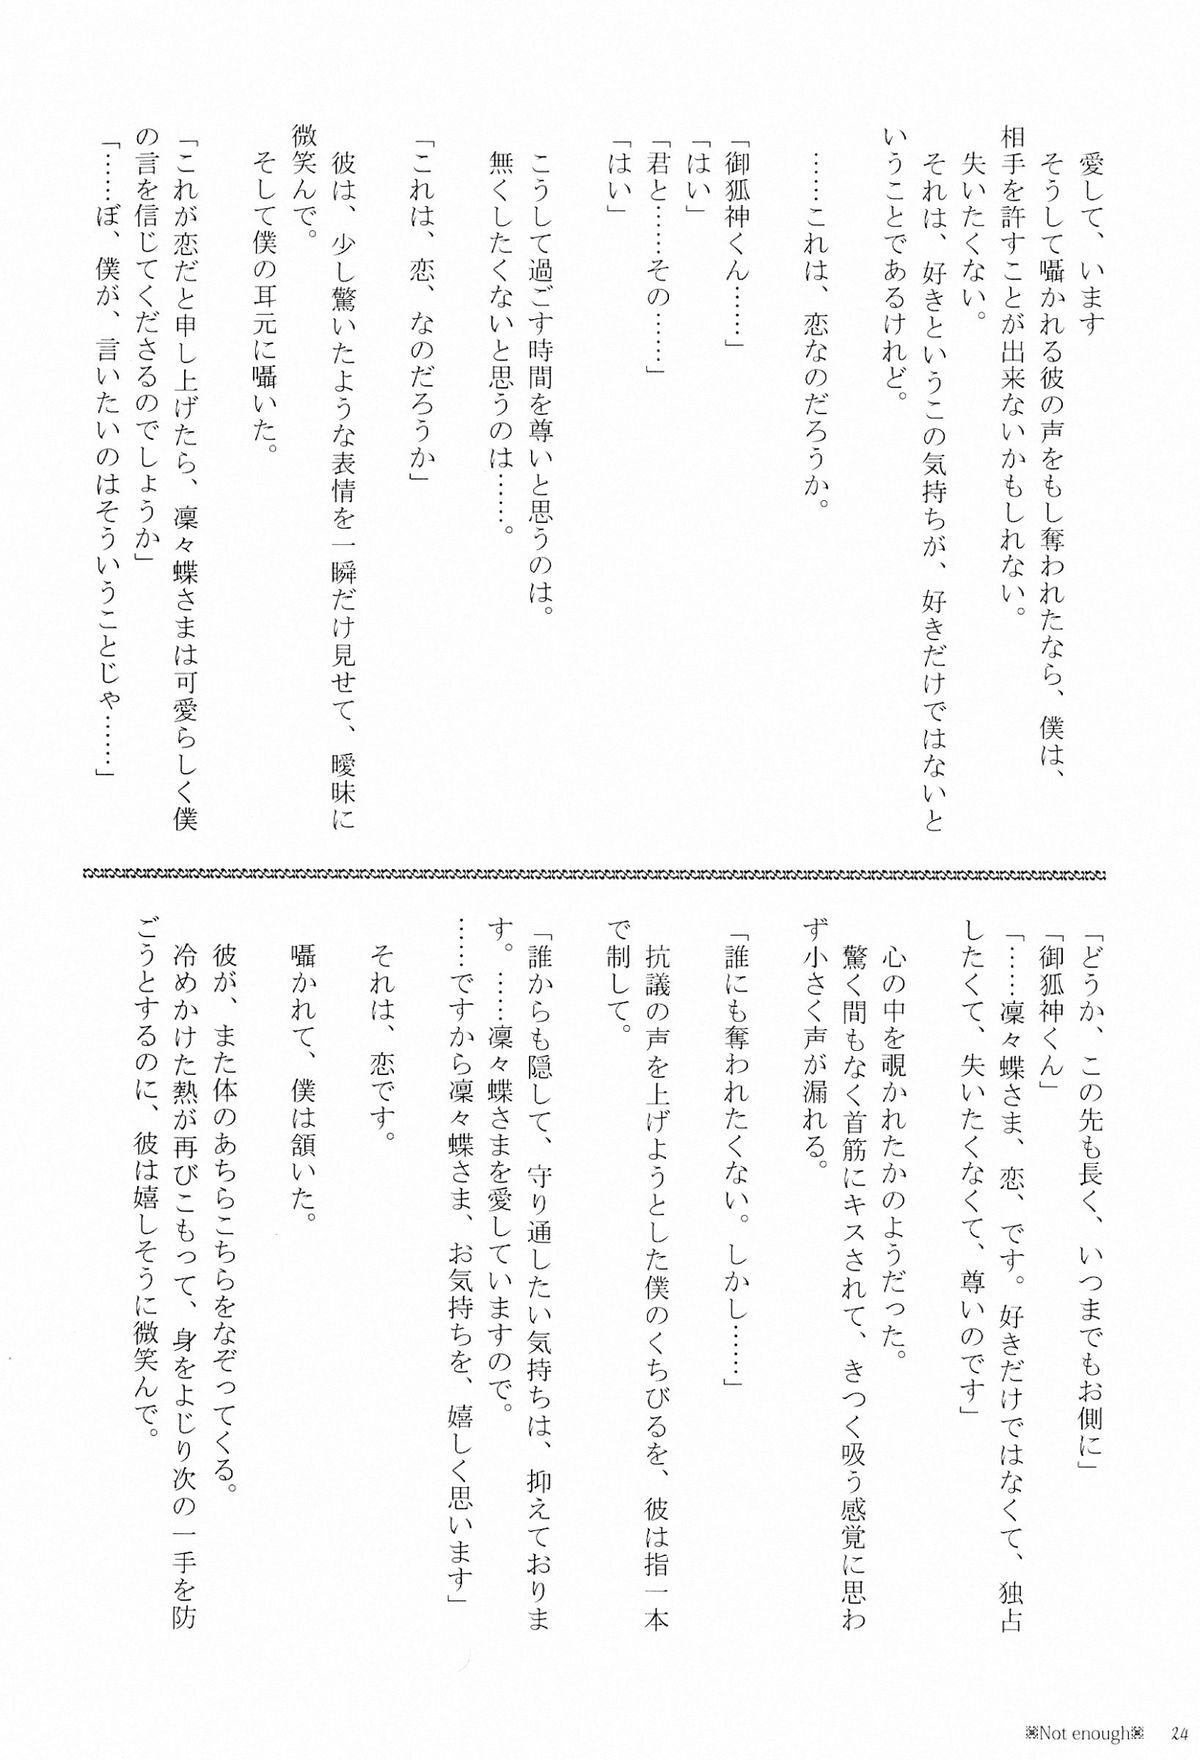 愛して、います
そうして囁かれる彼の声をもし奪われたなら、僕は、
相手を許すことが出来ないかもしれない。
失いたくない。
それは、好きというこの気持ちが、好きだけではないと
いうことであるけれど。
……これは、恋なのだろうか。
「御狐神くん……」
「はい」
「君と……その……」
「はい」
こうして過ごす時間を尊いと思うのは。
無くしたくないと思うのは……。
「これは、恋、なのだろうか」
彼は、少し驚いたような表情を一瞬だけ見せて、曖昧に
微笑んで。
そして僕の耳元に囁いた。
「これが恋だと申し上げたら、凜々蝶さまは可愛らしく僕
の言を信じてくださるのでしょうか」
「……ぼ、僕が、言いたいのはそういうことじゃ……」
「どうか、この先も長く、いつまでもお側に」
「御狐神くん」
「……凜々蝶さま、恋、です。好きだけではなくて、独占
したくて、失いたくなくて、尊いのです」
心の中を覗かれたかのようだった。
驚く間もなく首筋にキスされて、きつく吸う感覚に思わ
ず小さく声が漏れる。
「誰にも奪われたくない。しかし……」
抗議の声を上げようとした僕のくちびるを、彼は指一本
で制して。
「誰からも隠して、守り通したい気持ちは、抑えておりま
す。……凜々蝶さまを愛していますので。
……ですから凜々蝶さま、お気持ちを、嬉しく思います」
それは、恋です。
囁かれて、僕は頷いた。
彼が、また体のあちらこちらをなぞってくる。
冷めかけた熱が再びこもって、身をよじり次の一手を防
ごうとするのに、彼は嬉しそうに微笑んで。
※Not enough※ 24